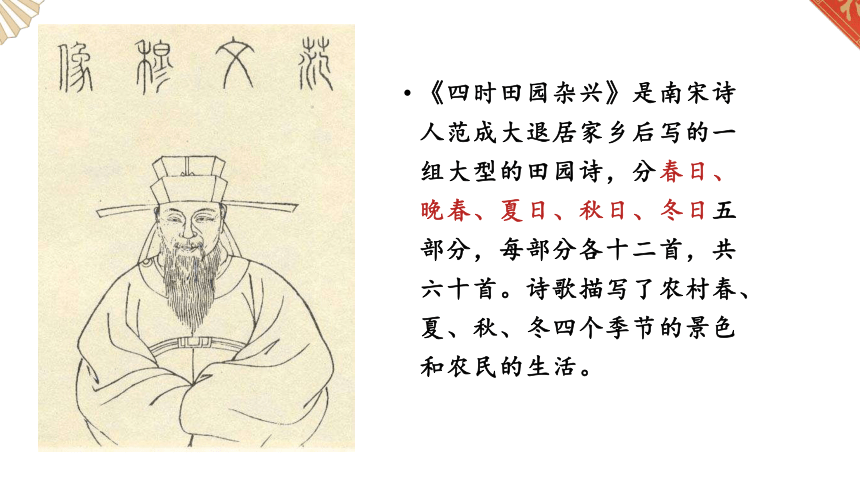 范文穆像
• 《四时田园杂兴》是南宋诗
人范成大退居家乡后写的一
组大型的田园诗，分春日、
晚春、夏日、秋日、冬日五
部分，每部分各十二首，共
六十首。诗歌描写了农村春、
夏、秋、冬四个季节的景色
和农民的生活。